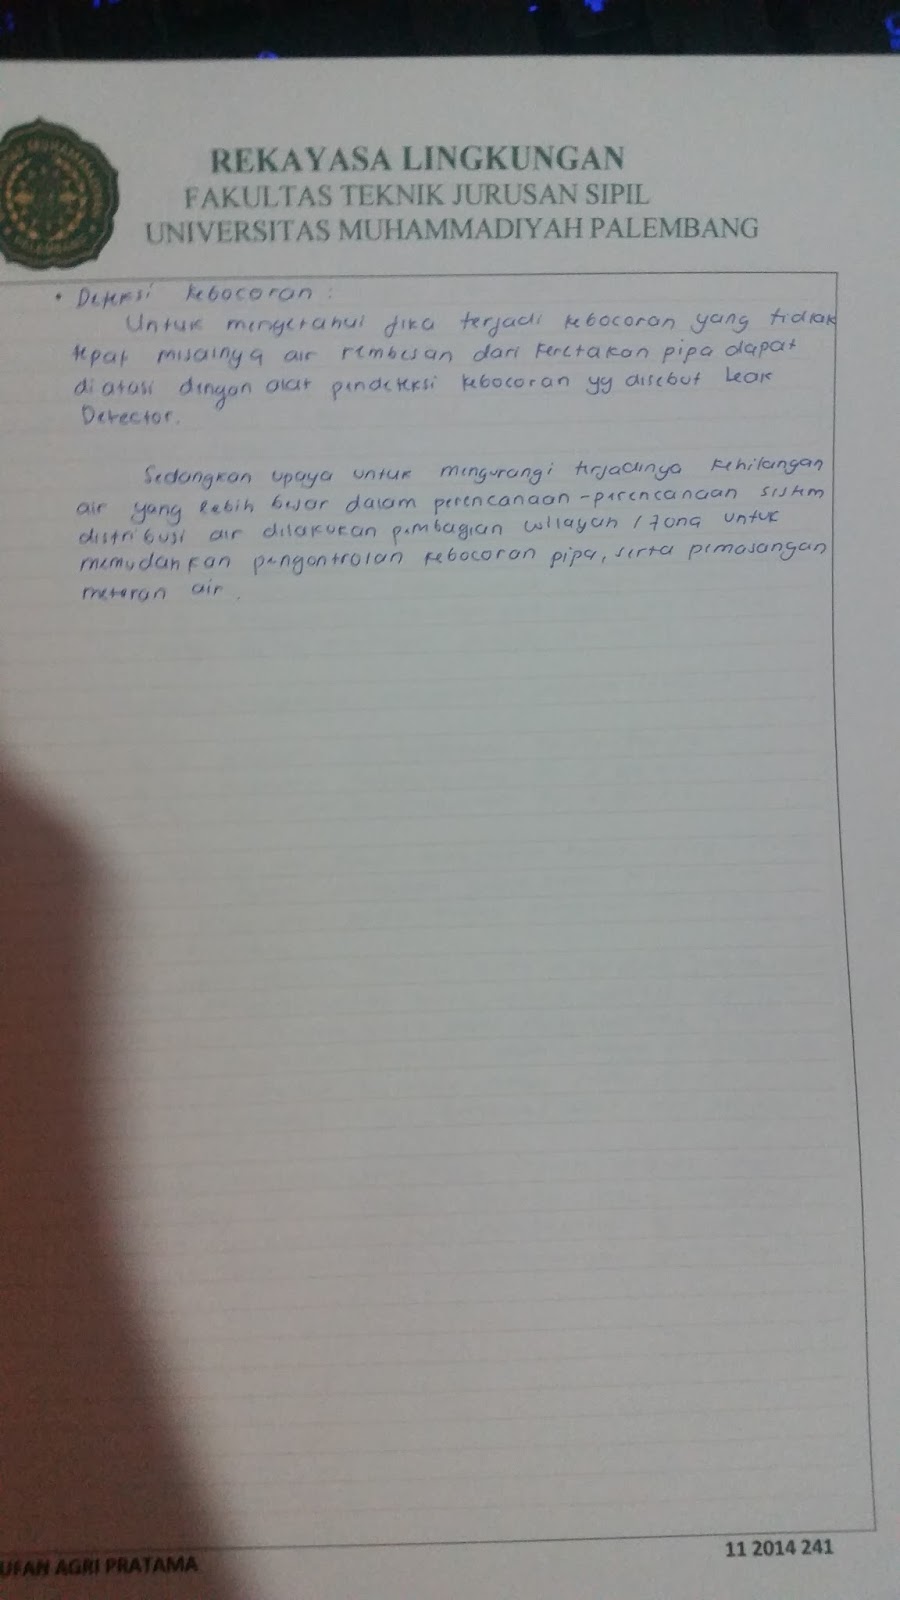 REKAYASA LINGKUNGAN
FAKULTAS TEKNIK JURUSAN SIPIL
UNIVERSITAS MUHAMMADIYAH PALEMBANG
PALEMBANG
• Deteksi kebocoran :
Untuk mengetahui jika terjadi kebocoran yang tidak
tepat misalnya air rembesan dari keretakan pipa dapat
di atasi dengan alat pendeteksi kebocoran yg disebut Leak
Detector.
Sedangkan upaya untuk mengurangi terjadinya kehilangan
air yang lebih besar dalam perencanaan-perencanaan sistem
distribusi air dilakukan pembagian wilayah / zona untuk
memudahkan pengontrolan kebocoran pipa, serta pemasangan
meteran air.
UFAN AGRI PRATAMA
11 2014 241